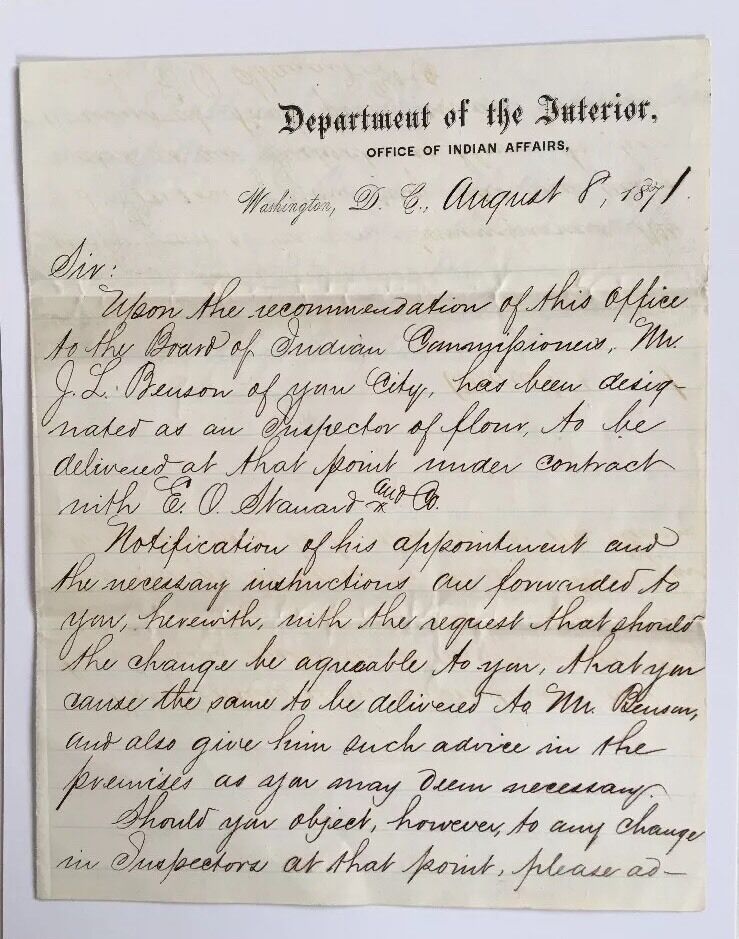 Department of the Interior,
OFFICE OF INDIAN AFFAIRS,
Washington, D. C., August 8, 1871.
Sir:
Upon the recommendation of this Office
to the Board of Indian Commissioners, Mr.
J. L. Benson of your City, has been desig-
nated as an Inspector of flour, to be
delivered at that point under contract
with E. O. Stanard and Co.
Notification of his appointment and
the necessary instructions are forwarded to
you, herewith, with the request that should
the change be agreeable to you, that you
cause the same to be delivered to Mr. Benson,
and also give him such advice in the
premises as you may deem necessary.
Should you object, however, to any change
in Inspectors at that point, please ad-